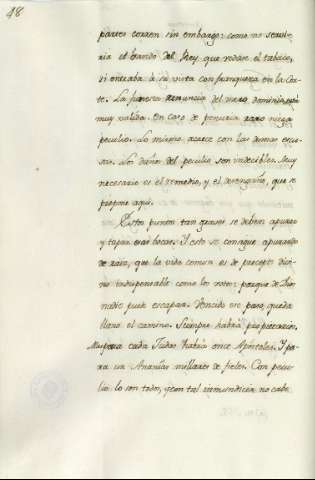 48
partes corren sin embargo: como no serviria
el bando del Rey, que vedase el tabaco,
si entraba à su vista con franqueza en la Cor-
te. La funesta renuncia del mero dominio está
muy valida. En caso de penuria raro niega
peculio. Lo mismo acaece con las demas escu-
sas. Los daños del peculio son indecibles. Muy
necesario es el remedio, y el desengaño, que se
propone aqui.
Estos puntos tan graves se deben apurar
y tapar esas bocas. Y esto se consigue apurando
de raiz, que la vida comun es de precepto divi-
no indispensable como los votos: porque de Dios
nadie puede escapar. Vencido ese paso, queda
llano el camino. Siempre habrá propietarios.
Mas para cada Judas habrá once Apóstoles. Y pa-
ra un Ananías millares de fieles. Con pecu-
lio lo son todos, y con tal remundicia no cabe